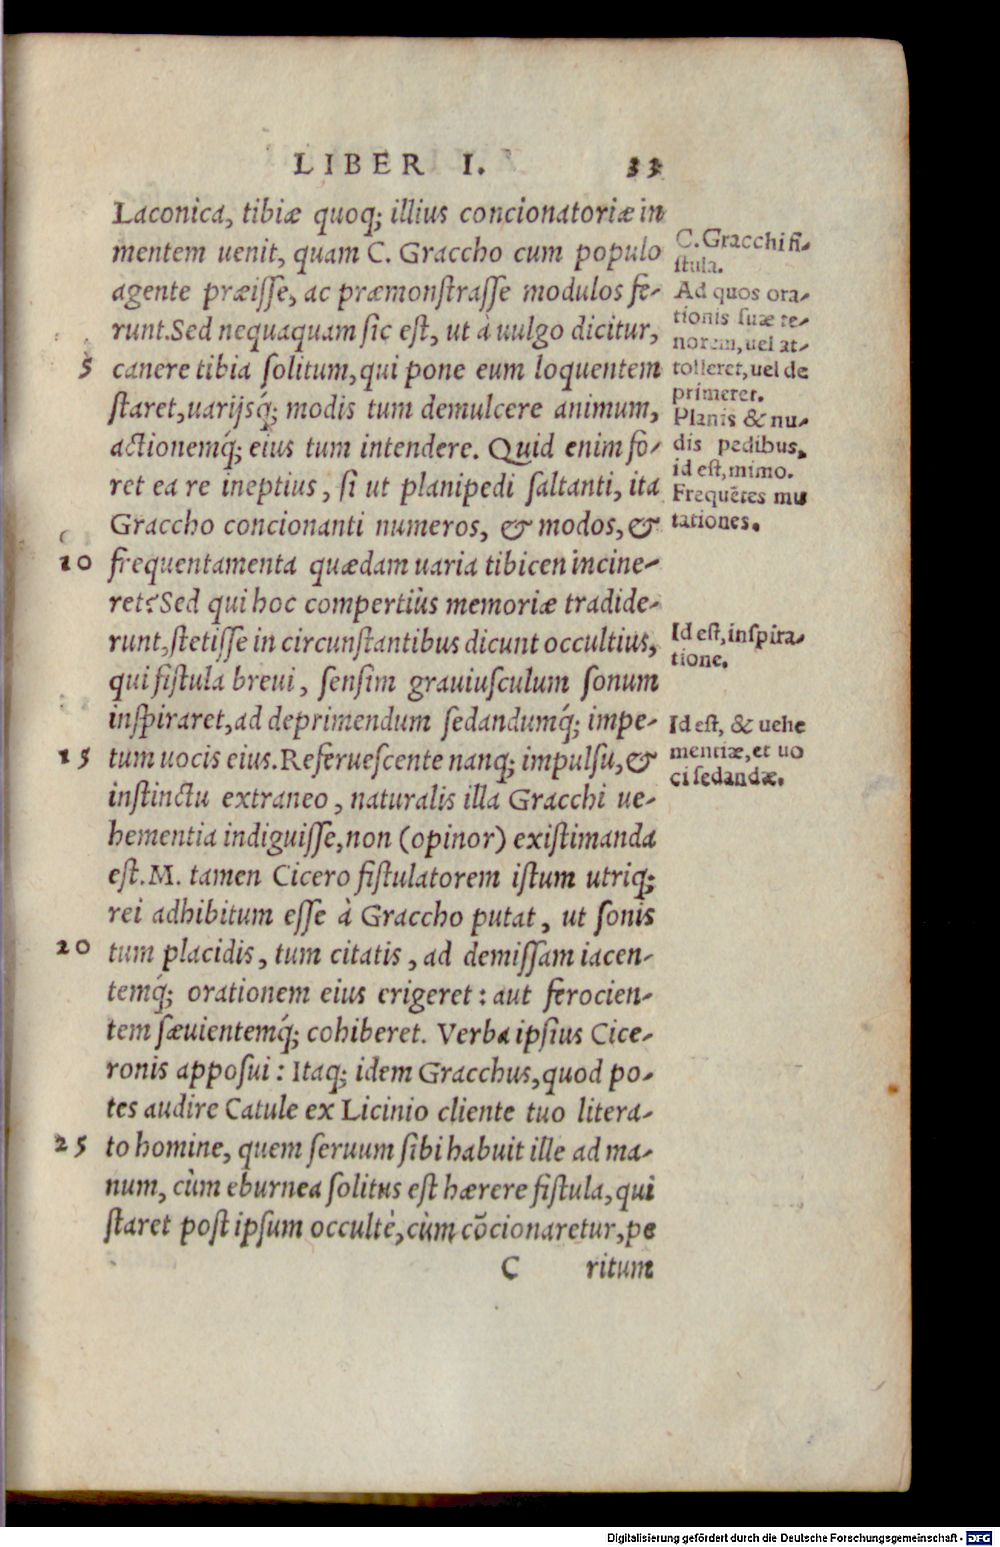 LIBER I. 33
Laconica, tibiæ quoq; illius concionatoriæ in
mentem uenit, quam C. Graccho cum populo
agente præisse, ac præmonstrasse modulos fe-
runt. Sed nequaquam sic est, ut à uulgo dicitur,
5 canere tibia solitum, qui pone eum loquentem
staret, uarijsq́; modis tum demulcere animum,
actionemq́; eius tum intendere. Quid enim fo-
ret ea re ineptius, si ut planipedi saltanti, ita
Graccho concionanti numeros, & modos, &
10 frequentamenta quædam uaria tibicen incine-
ret? Sed qui hoc compertiùs memoriæ tradide-
runt, stetisse in circunstantibus dicunt occultius,
qui fistula breui, sensim grauiusculum sonum
inspiraret, ad deprimendum sedandumq́; impe-
15 tum uocis eius. Referuescente nanq; impulsu, &
instinctu extraneo, naturalis illa Gracchi ue-
hementia indiguisse, non (opinor) existimanda
est. M. tamen Cicero fistulatorem istum utriq;
rei adhibitum esse à Graccho putat, ut sonis
20 tum placidis, tum citatis, ad demissam iacen-
temq́; orationem eius erigeret: aut ferocien-
tem sæuientemq́; cohiberet. Verba ipsius Cice-
ronis apposui: Itaq; idem Gracchus, quod po-
tes audire Catule ex Licinio cliente tuo litera-
25 to homine, quem seruum sibi habuit ille ad ma-
num, cùm eburnea solitus est hærere fistula, qui
staret post ipsum occultè, cùm cōcionaretur, pe
C ritum
C. Gracchi fi-
stula.
Ad quos ora-
tionis suæ te-
norem, uel at-
tolleret, uel de
primeret.
Planis & nu-
dis pedibus,
id est, mimo.
Frequētes mu
tationes.
Id est, inspira-
tione.
Id est, & uehe
mentiæ, et uo
ci sedandæ.
Digitalisierung gefördert durch die Deutsche Forschungsgemeinschaft - DFG